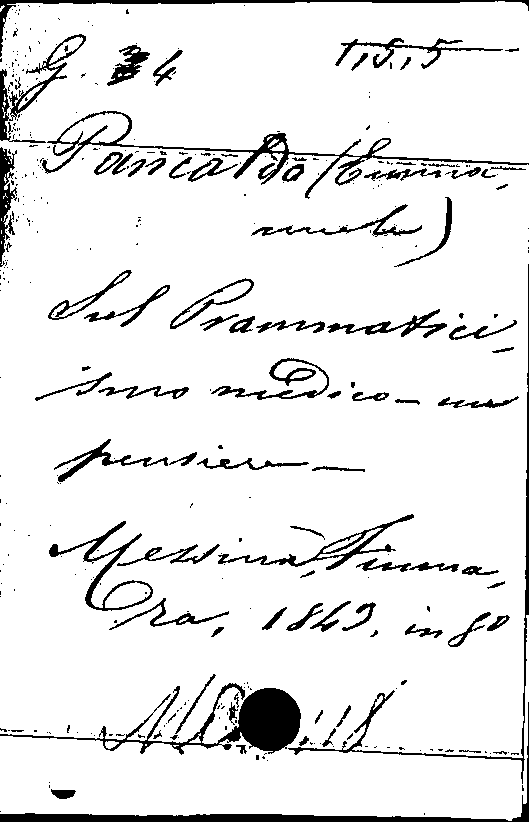 G. 4 1,5,5
Pancaldo (Emma,
nuele)
Sul Prammatici,
ismo medico - un
pensiero -
Messina, Fiuma,
ra, 1843. in 8º